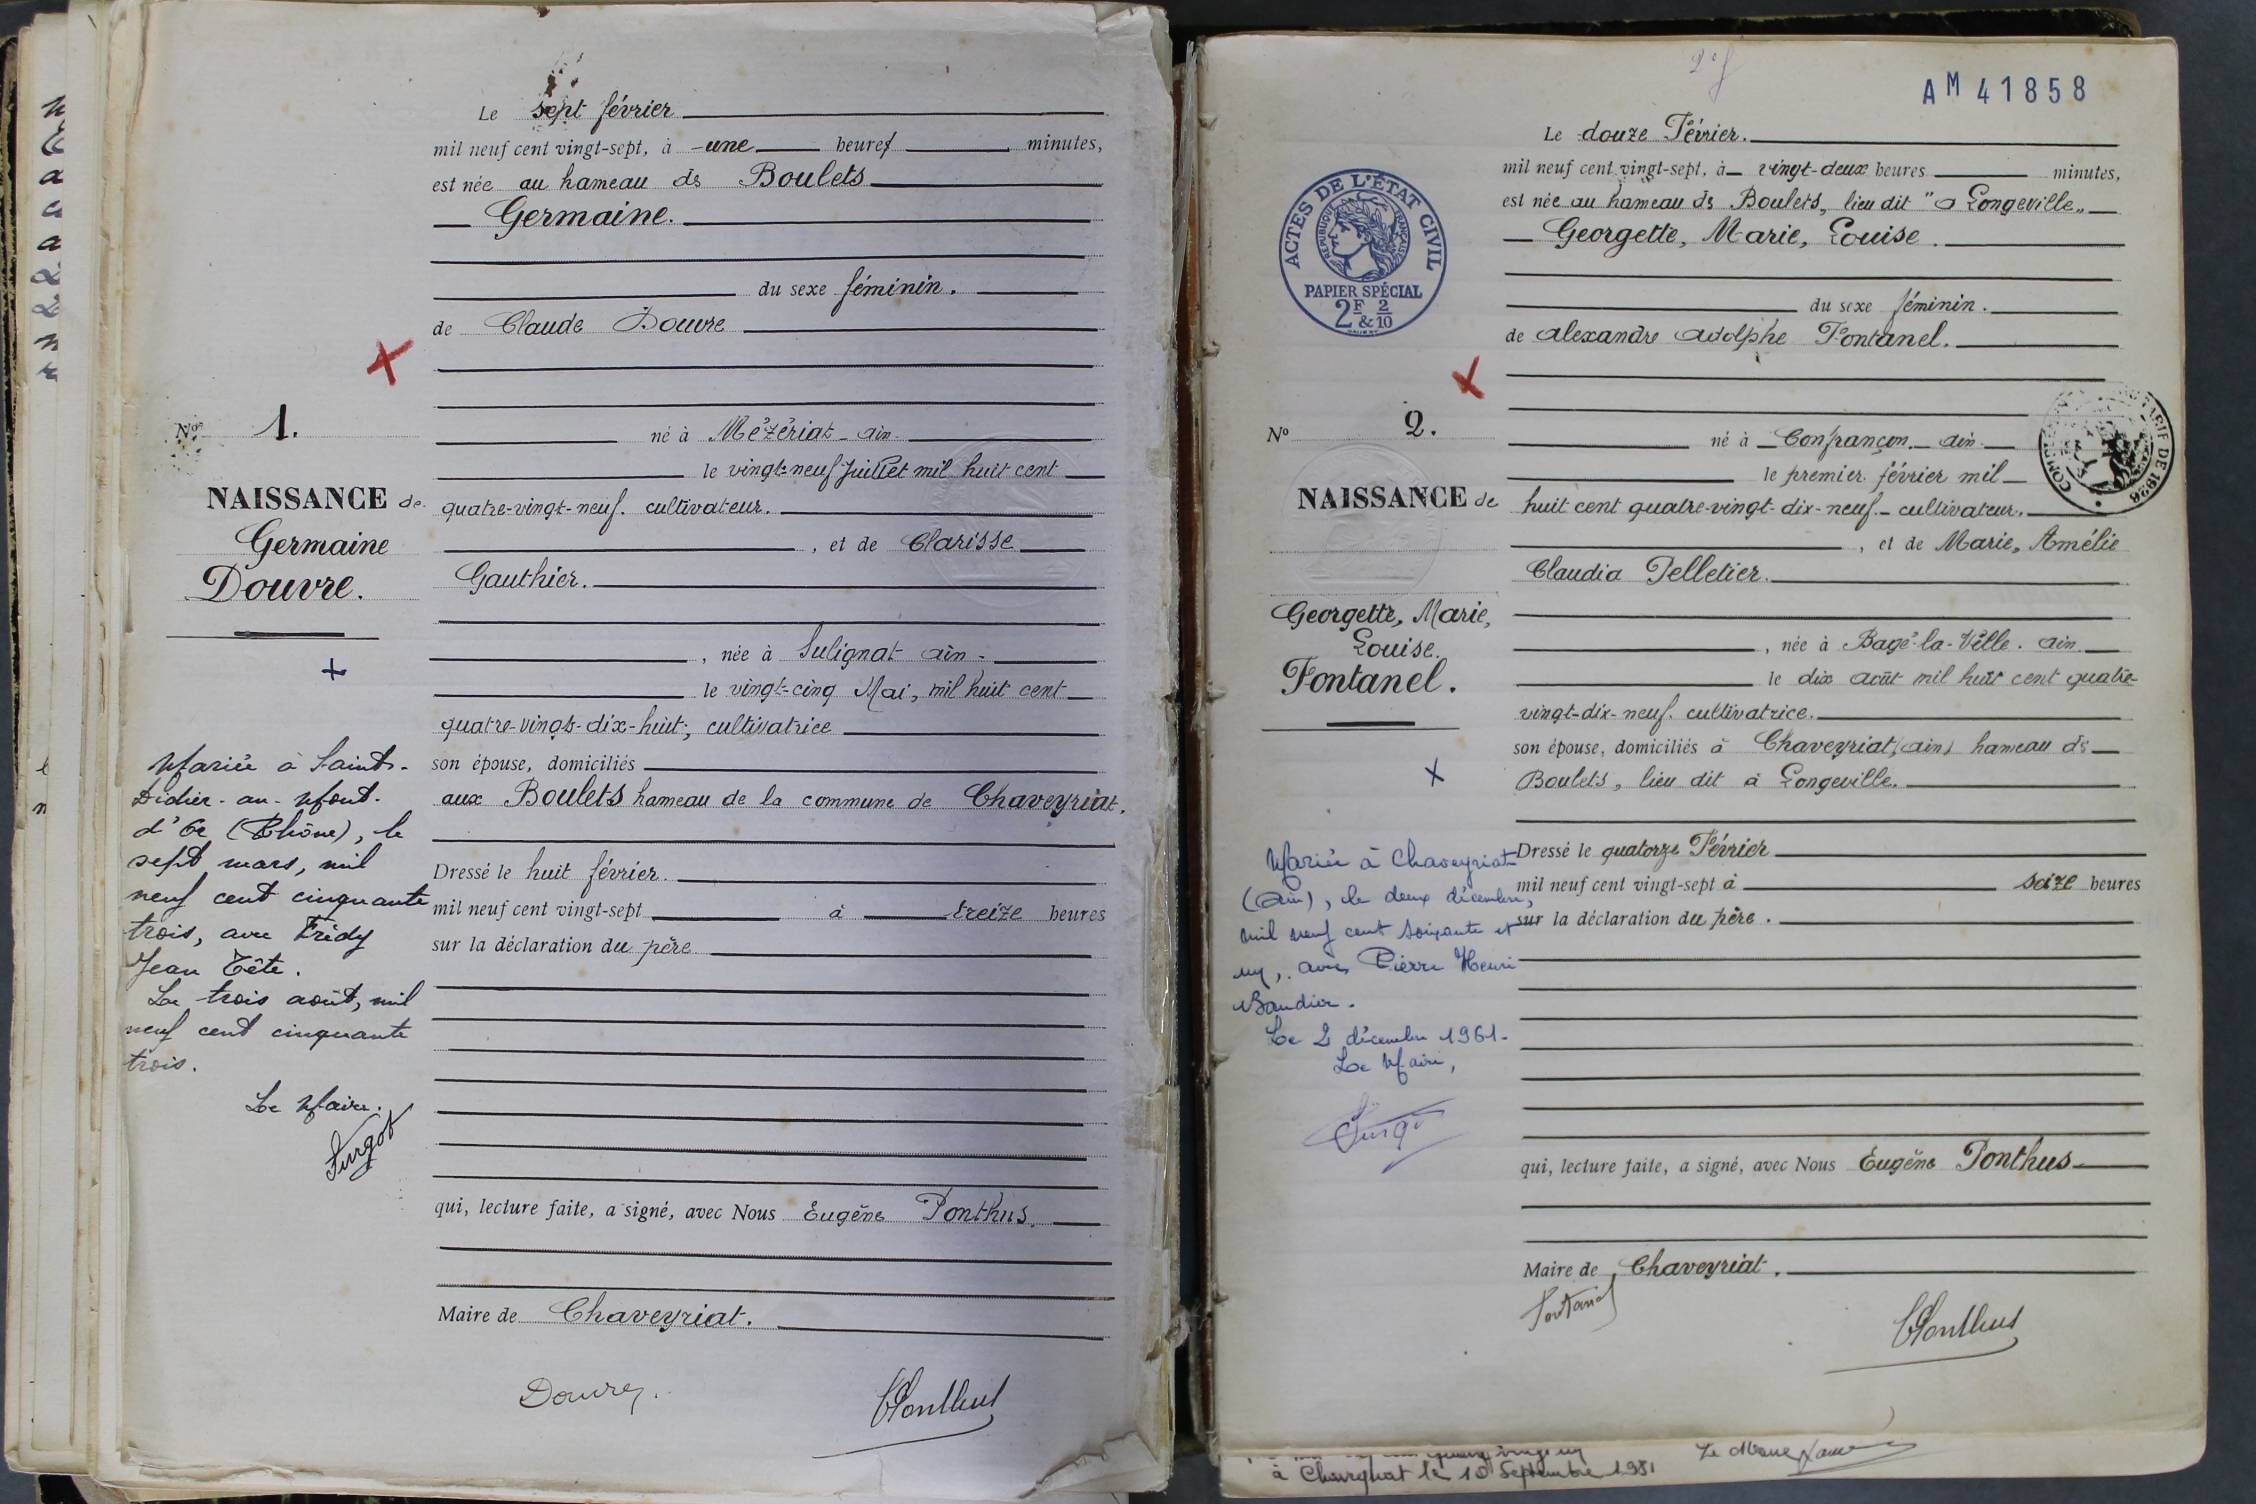 Le sept février
mil neuf cent vingt-sept, à une heures minutes,
est née au hameau des Boulets
Germaine.
du sexe féminin.
de Claude Douvre
né à Mézériat ain
le vingt-neuf Juillet mil huit cent
quatre-vingt-neuf. cultivateur.
, et de Clarisse
Gauthier.
, née à Sulignat ain
le vingt-cinq Mai, mil huit cent
quatre-vingt-dix-huit, cultivatrice
son épouse, domiciliés
aux Boulets hameau de la commune de Chaveyriat.
Dressé le huit février.
mil neuf cent vingt-sept à treize heures
sur la déclaration du père
qui, lecture faite, a signé, avec Nous Eugène Ponthus.
Maire de Chaveyriat.
Douvre.
Ponthus
No 1.
NAISSANCE de
Germaine
Douvre.
Mariée à Saint-
Didier-au-Mont-
d'Or (Rhône), le
sept mars, mil
neuf cent cinquante
trois, avec Frédy
Jean Tête.
Le trois août, mil
neuf cent cinquante
trois.
Le Maire.
Furgot
AM 41858
Le douze Février.
mil neuf cent vingt-sept, à vingt-deux heures minutes,
est née au hameau des Boulets, lieu dit "a Longeville"
Georgette, Marie, Louise.
du sexe féminin.
de alexandre adolphe Fontanel.
né à Confrançon ain
le premier février mil
huit cent quatre-vingt-dix-neuf - cultivateur.
, et de Marie, Amélie
Claudia Pelletier.
, née à Bagé-la-Ville. ain.
le dix août mil huit cent quatre-
vingt-dix-neuf. cultivatrice.
son épouse, domiciliés à Chaveyriat (ain) hameau des
Boulets, lieu dit à Longeville.
Dressé le quatorze Février
mil neuf cent vingt-sept à seize heures
sur la déclaration du père.
qui, lecture faite, a signé, avec Nous Eugène Ponthus
Maire de Chaveyriat.
Fontanel
Ponthus
ACTES DE L'ÉTAT CIVIL
RÉPUBLIQUE FRANÇAISE
PAPIER SPÉCIAL
2F & 2/10
DE 1926
No 2.
NAISSANCE de
Georgette, Marie,
Louise.
Fontanel.
Mariée à Chaveyriat
(Ain), le deux décembre,
mil neuf cent soixante et
un, avec Pierre Henri
Baudier.
Le 2 décembre 1961.
Le Maire,
Furgot
Le Maire
à Chaveyriat le 10 Septembre 1981